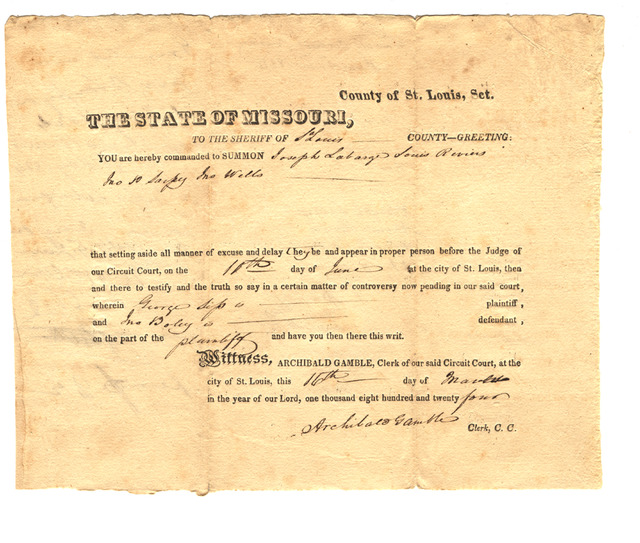 County of St. Louis, Sct.
THE STATE OF MISSOURI,
TO THE SHERIFF OF St Louis COUNTY—GREETING:
YOU are hereby commanded to SUMMON Joseph Labarge Louis Reviere
Jno B Sarpy Jno Wells
that setting aside all manner of excuse and delay they be and appear in proper person before the Judge of
our Circuit Court, on the 16th day of June at the city of St. Louis, then
and there to testify and the truth so say in a certain matter of controversy now pending in our said court,
wherein George is plaintiff,
and Jno is defendant,
on the part of the plaintiff and have you then there this writ.
Wittness, ARCHIBALD GAMBLE, Clerk of our said Circuit Court, at the
city of St. Louis, this 16th day of March
in the year of our Lord, one thousand eight hundred and twenty four
Archibald Gamble Clerk, C. C.